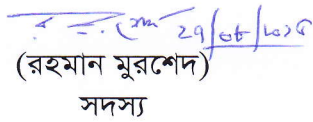 ২৭/০৮/২০১৫
(রহমান মুরশেদ)
সদস্য